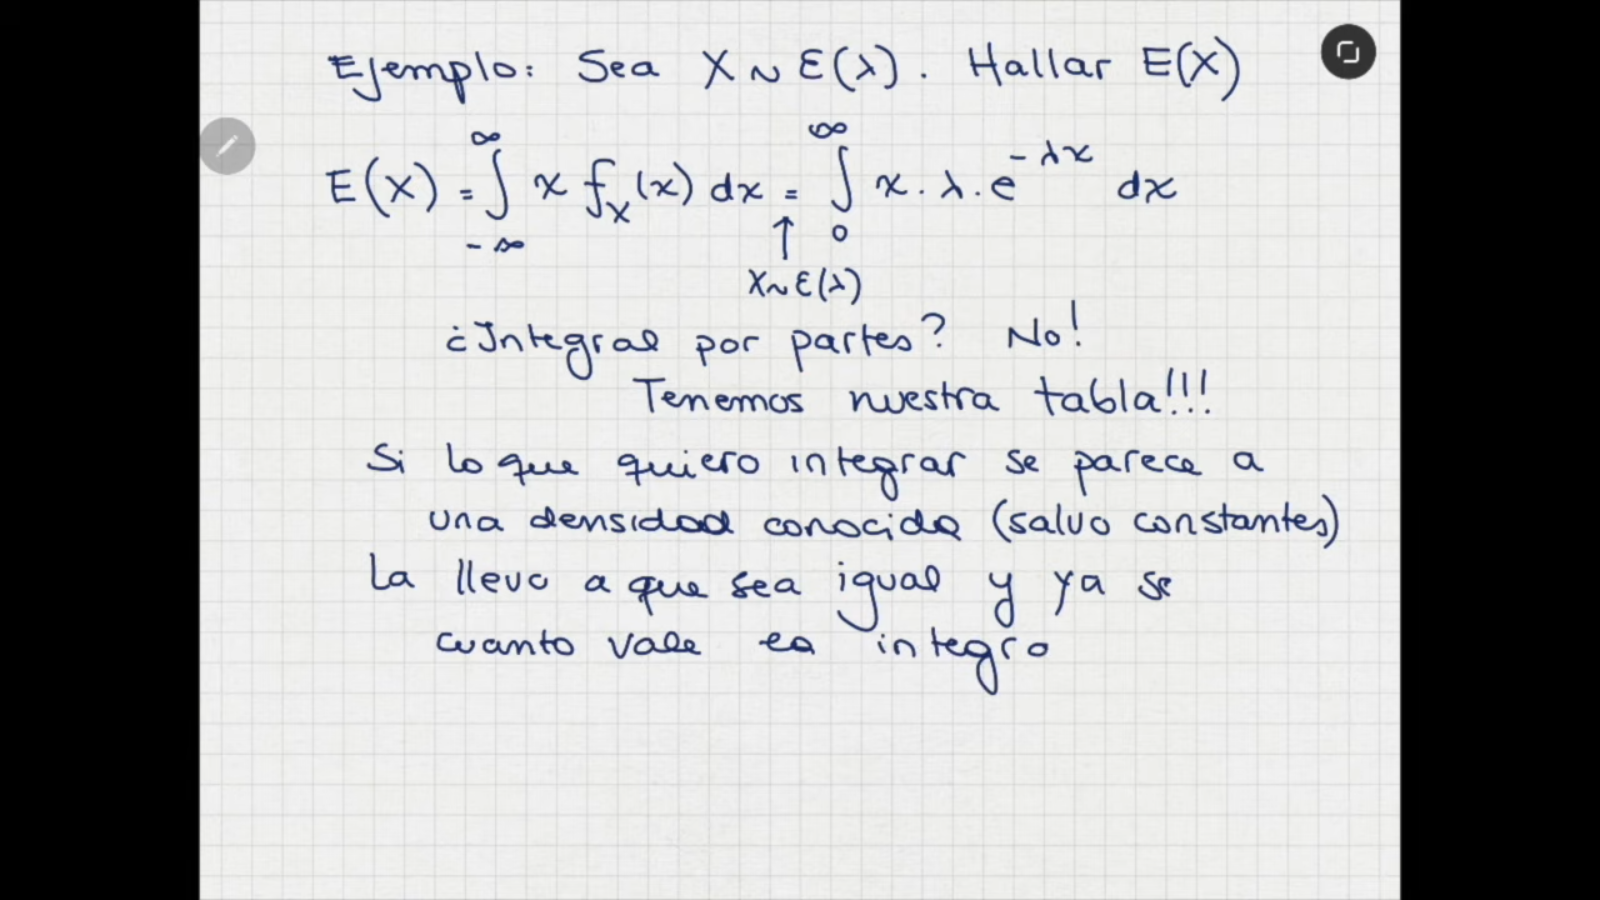 Ejemplo: Sea X ~ Ɛ(λ). Hallar E(X)
E(X) = ∫_{-∞}^{∞} x f_X(x) dx = ∫_0^∞ x · λ · e^{-λx} dx
↑
X~Ɛ(λ)
¿Integral por partes? No!
Tenemos nuestra tabla!!!
Si lo que quiero integrar se parece a
una densidad conocida (salvo constantes)
La llevo a que sea igual y ya se
cuanto vale la integra